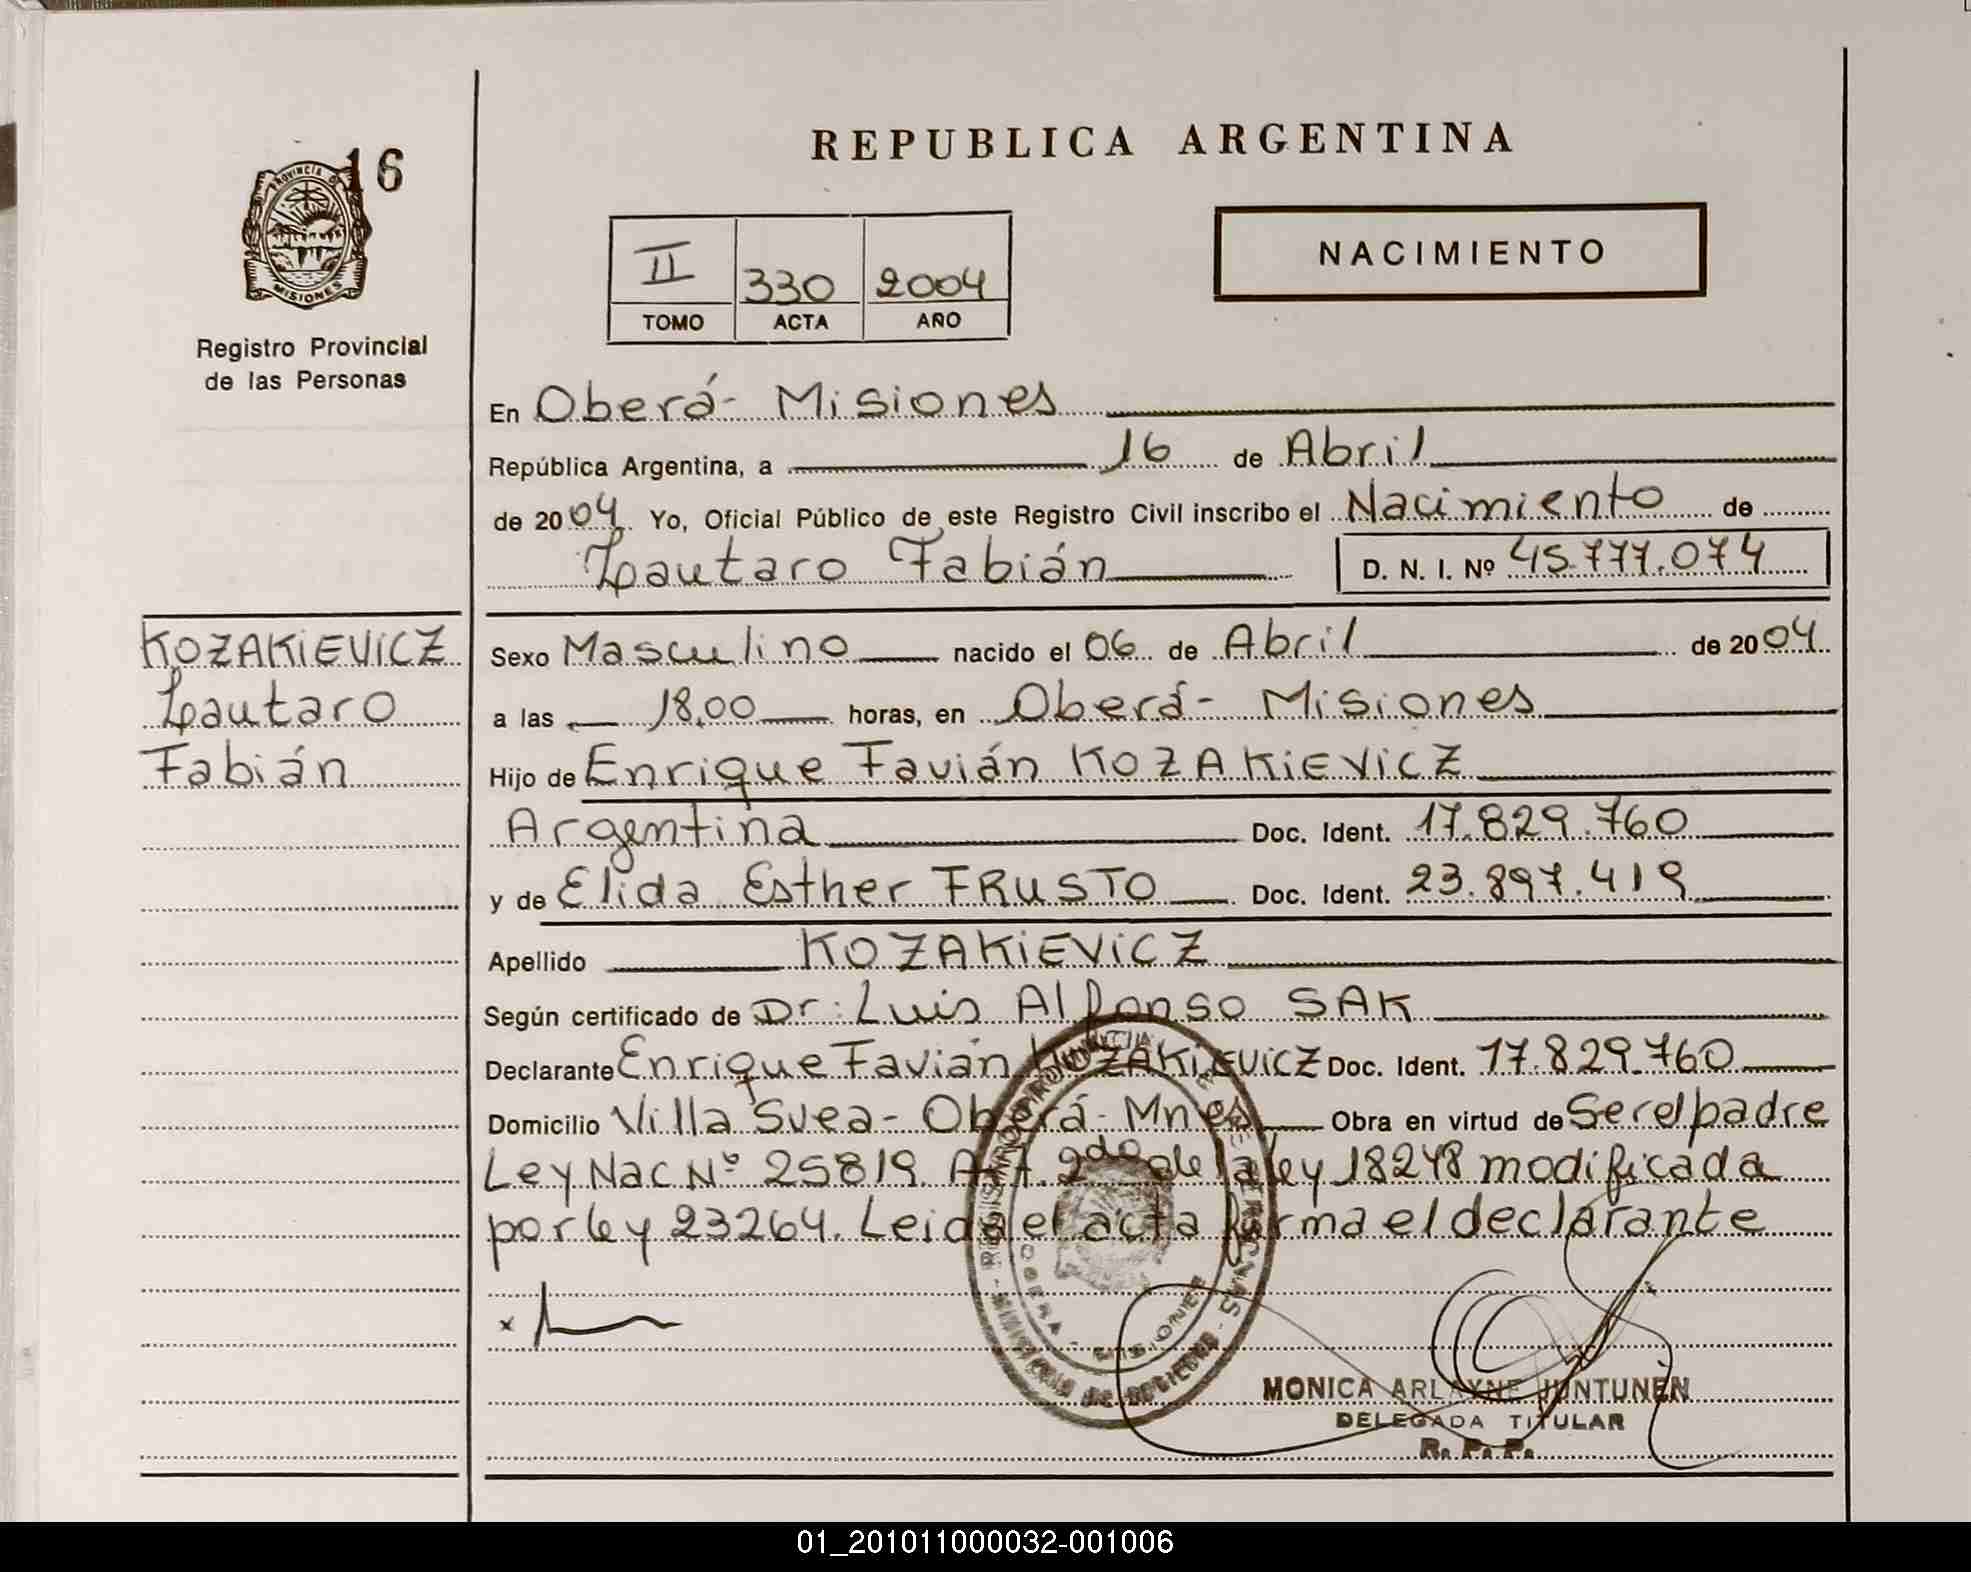 16
PROVINCIA DE
MISIONES
Registro Provincial
de las Personas
REPUBLICA ARGENTINA
NACIMIENTO
II 330 2004
TOMO ACTA AÑO
En Oberá- Misiones
República Argentina, a 16 de Abril
de 2004 Yo, Oficial Público de este Registro Civil inscribo el Nacimiento de
Lautaro Fabián D. N. I. Nº 45.777.074
KOZAKIEVICZ
Lautaro
Fabián
Sexo Masculino nacido el 06 de Abril de 2004
a las 18,00 horas, en Oberá- Misiones
Hijo de Enrique Favián KOZAKIEVICZ
Argentina Doc. Ident. 17.829.760
y de Elida Esther FRUSTO Doc. Ident. 23.897.419
Apellido KOZAKIEVICZ
Según certificado de Dr: Luis Alfonso SAK
Declarante Enrique Favián KOZAKIEVICZ Doc. Ident. 17.829.760
Domicilio Villa Svea- Oberá- Mnes Obra en virtud de Ser el padre
Ley Nac Nº 25819 Art. 2do de la ley 18248 modificada
por ley 23264. Leida el acta firma el declarante
x
REGISTRO PROVINCIAL DE LAS PERSONAS
MINISTERIO DE GOBIERNO
OBERA - MISIONES
MONICA ARLAYNE JUNTUNEN
DELEGADA TITULAR
R. P. P.
01_201011000032-001006